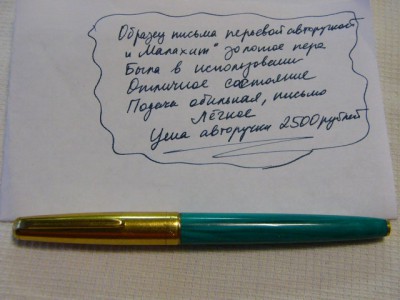 Образец письма перьевой авторучкой
и Малахит" золотое перо
Была в использовании
Отличное состояние
Подача обильная, письмо
Лёгкое
Цена авторучки 2500 рублей